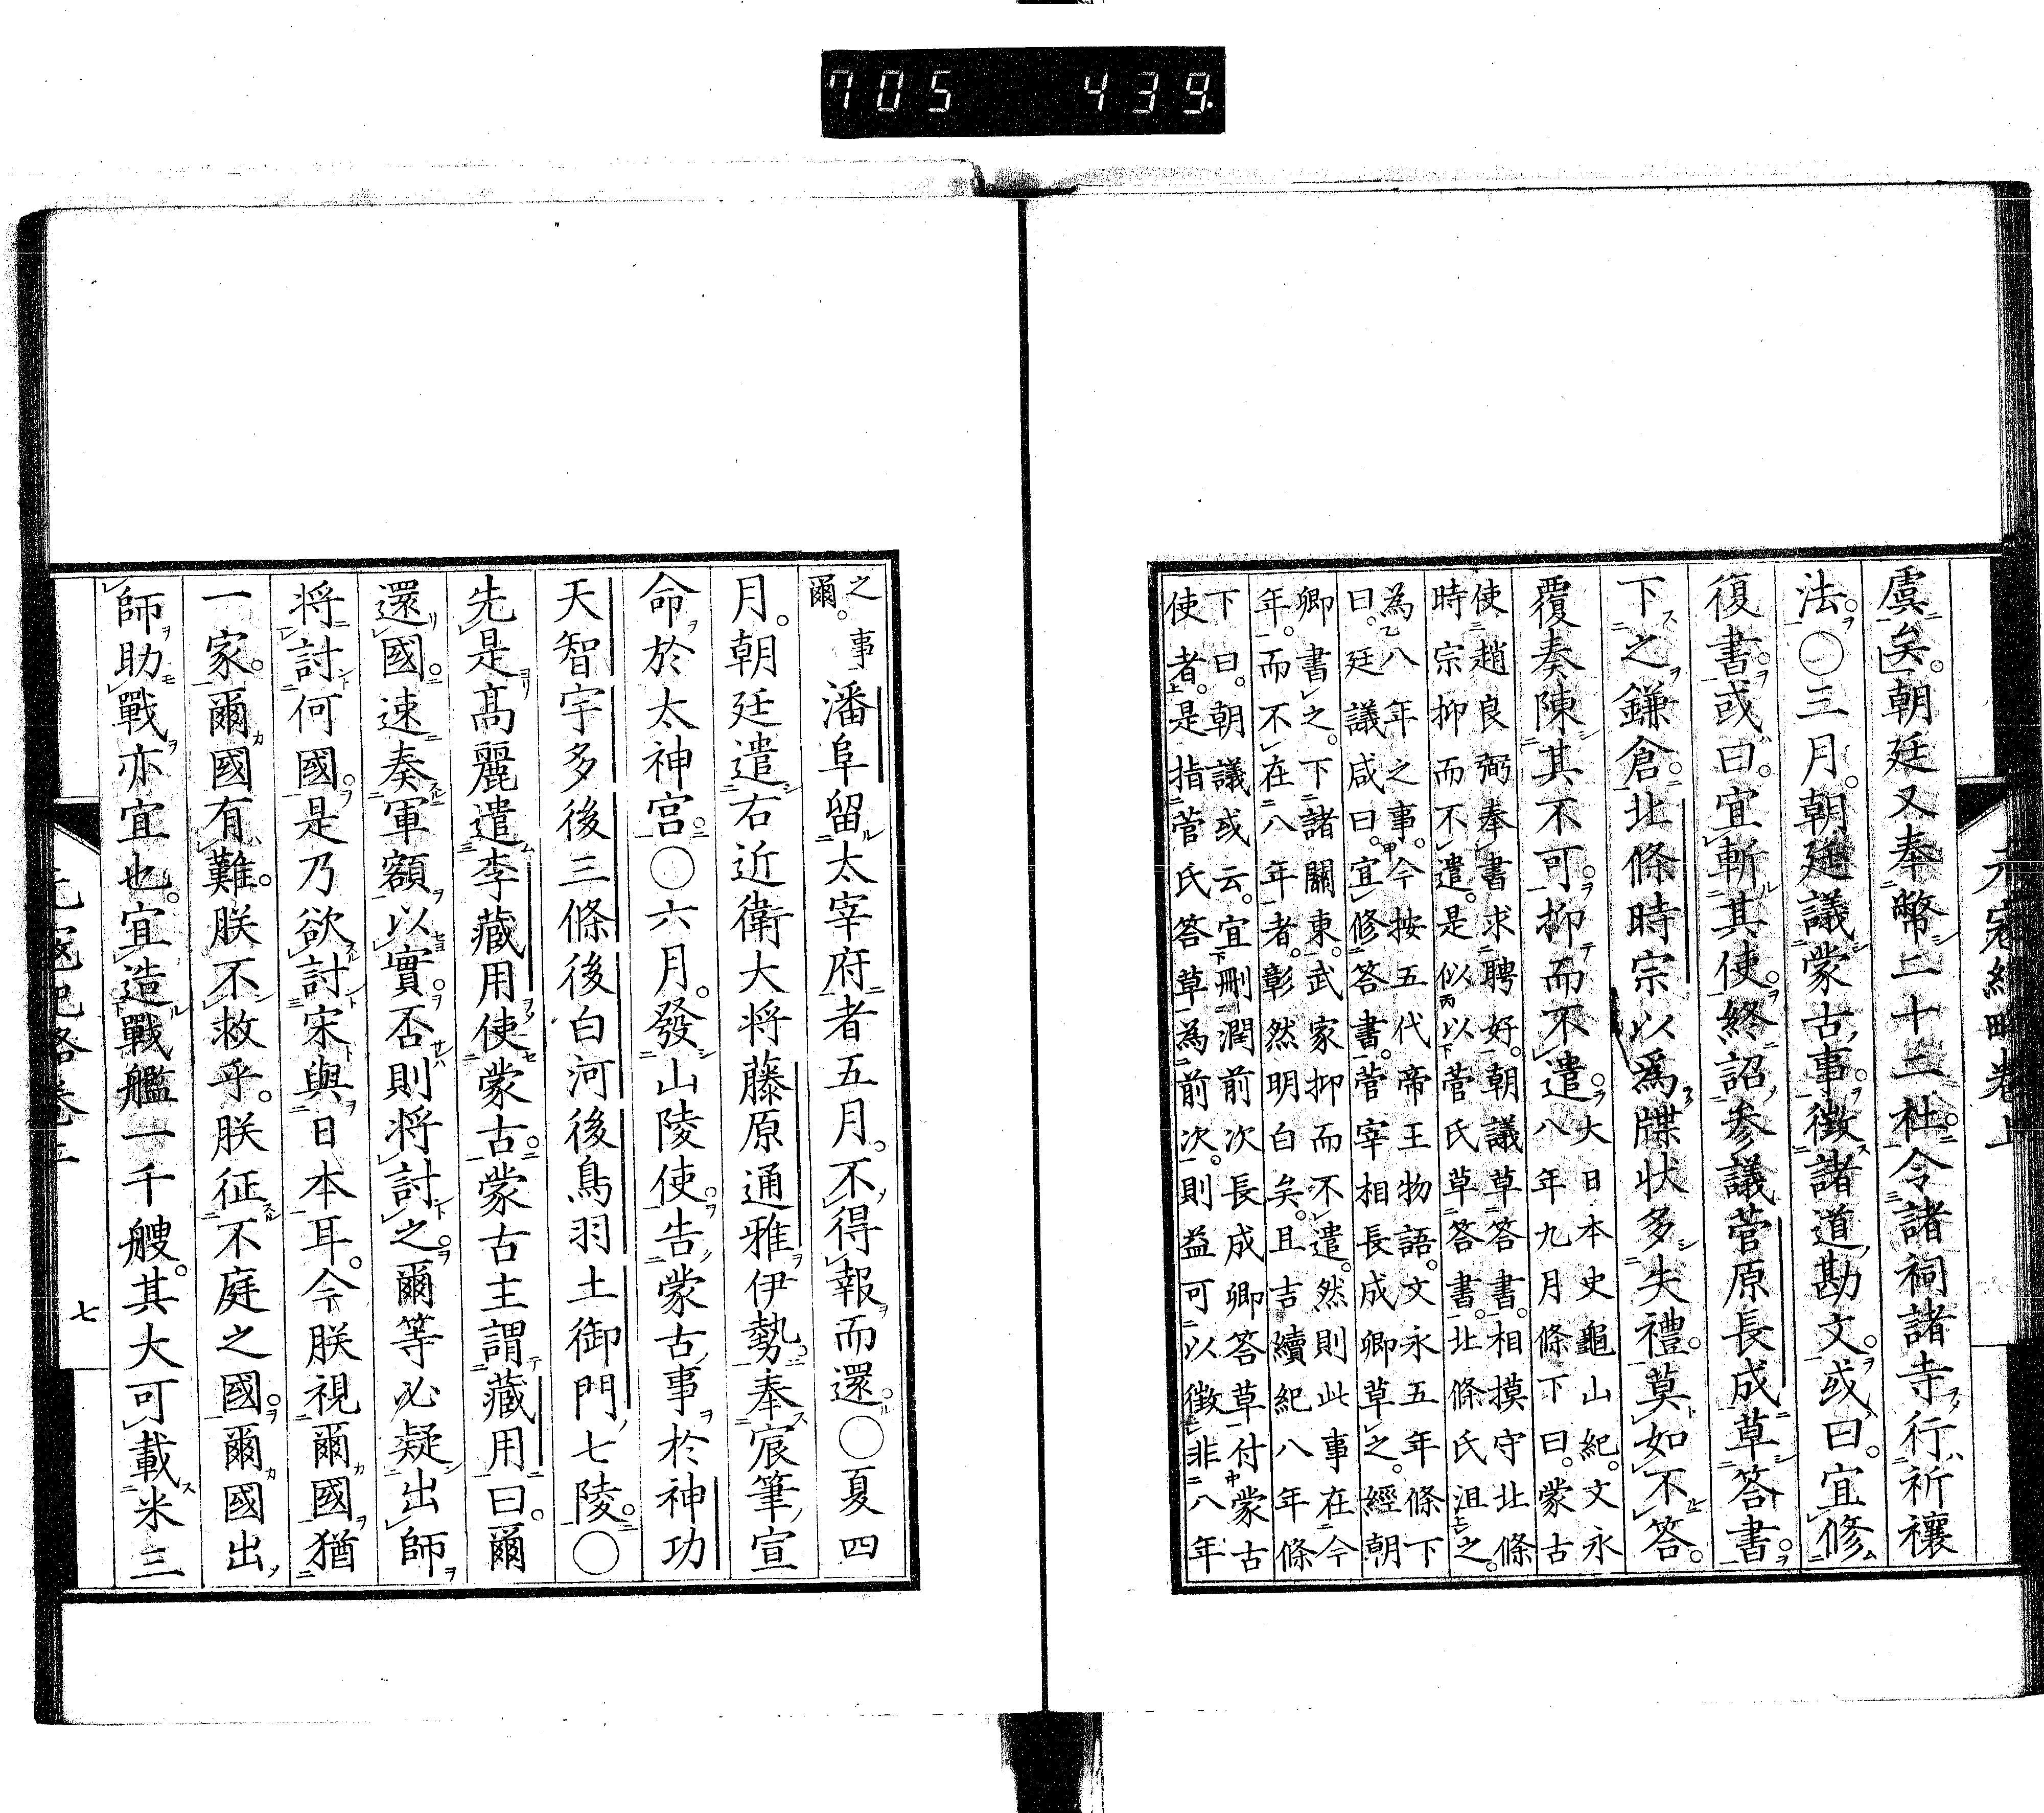 705 439
元寇紀略卷上
虞矣。朝廷又奉幣二十二社。令諸祠諸寺行祈禳
法。○三月。朝廷議蒙古事。徴諸道勘文。或曰。宜修
復書。或曰。宜斬其使。終詔参議菅原長成草答書。
下之鎌倉。北條時宗以爲牒状多失禮。莫如不答。
覆奏陳其不可。抑而不遣。
大日本史龜山紀。文永
八年九月條下曰。蒙古
使趙良弼奉書求聘好。朝議草答書。相摸守北條
時宗抑而不遣。是似以菅氏草答書。北條氏沮之。
為八年之事。今按五代帝王物語。文永五年條下
曰。廷議咸曰。宜修答書。菅宰相長成卿草之。經朝
卿書之。下諸關東。武家抑而不遣。然則此事在今
年。而不在八年者。彰然明白矣。且吉續紀八年條
下曰。朝議或云。宜刪潤前次長成卿答草付蒙古
使者。是指菅氏答草為前次。則益可以徴非八年
之事
爾。
潘阜留太宰府者五月。不得報而還。○夏四
月。朝廷遣右近衛大将藤原通雅伊勢。奉宸筆宣
命於太神宮。○六月。發山陵使。告蒙古事於神功
天智宇多後三條後白河後鳥羽土御門七陵。○
先是高麗遣李藏用使蒙古。蒙古主謂藏用曰。爾
還國。速奏軍額以實。否則将討之。爾等必疑出師
将討何國。是乃欲討宋與日本耳。今朕視爾國猶
一家。爾國有難。朕不救乎。朕征不庭之國。爾國出
師助戰亦宜也。宜造戰艦一千艘。其大可載米三
元寇紀略卷上
七